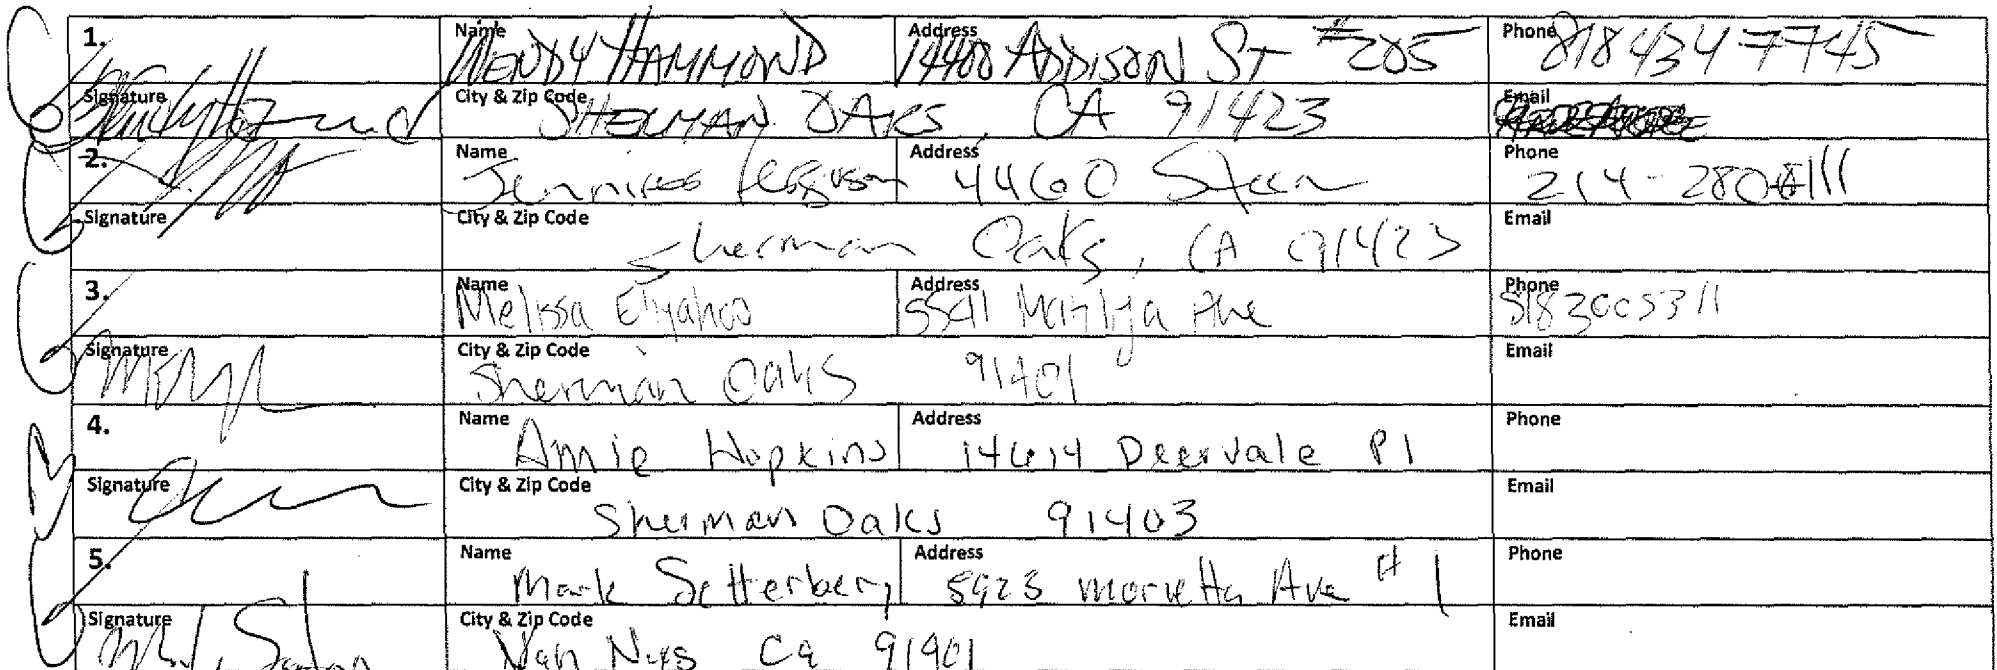 1. Name WENDY HAMMOND Address 14400 ADDISON ST #205 Phone 818 434 7745
Signature City & Zip Code SHERMAN OAKS, CA 91423 Email
2. Name Jennifer Ferguson Address 4460 Phone 214-280-8111
Signature City & Zip Code Sherman Oaks, CA 91423 Email
3. Name Melissa Eliyahoo Address 5541 Matilija Ave Phone 8183005311
Signature City & Zip Code Sherman Oaks 91401 Email
4. Name Amie Hopkins Address 14614 Deervale Pl Phone
Signature City & Zip Code Sherman Oaks 91403 Email
5. Name Mark Setterberg Address Ave #1 Phone
Signature City & Zip Code Van Nuys Ca 91401 Email